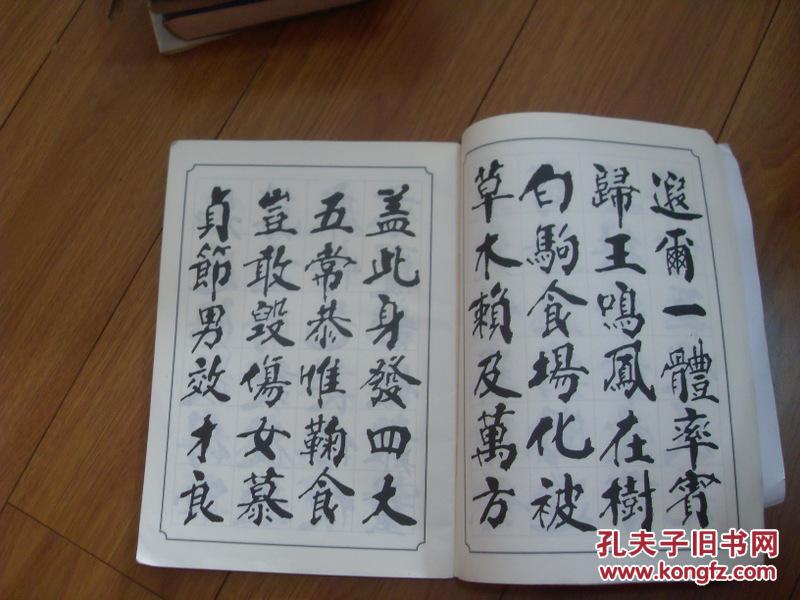 遐爾一體率賓
歸王鳴鳳在樹
白駒食場化被
草木賴及萬方
盖此身發四大
五常恭惟鞠食
豈敢毀傷女慕
貞節男效才良
孔夫子旧书网
www.kongfz.com